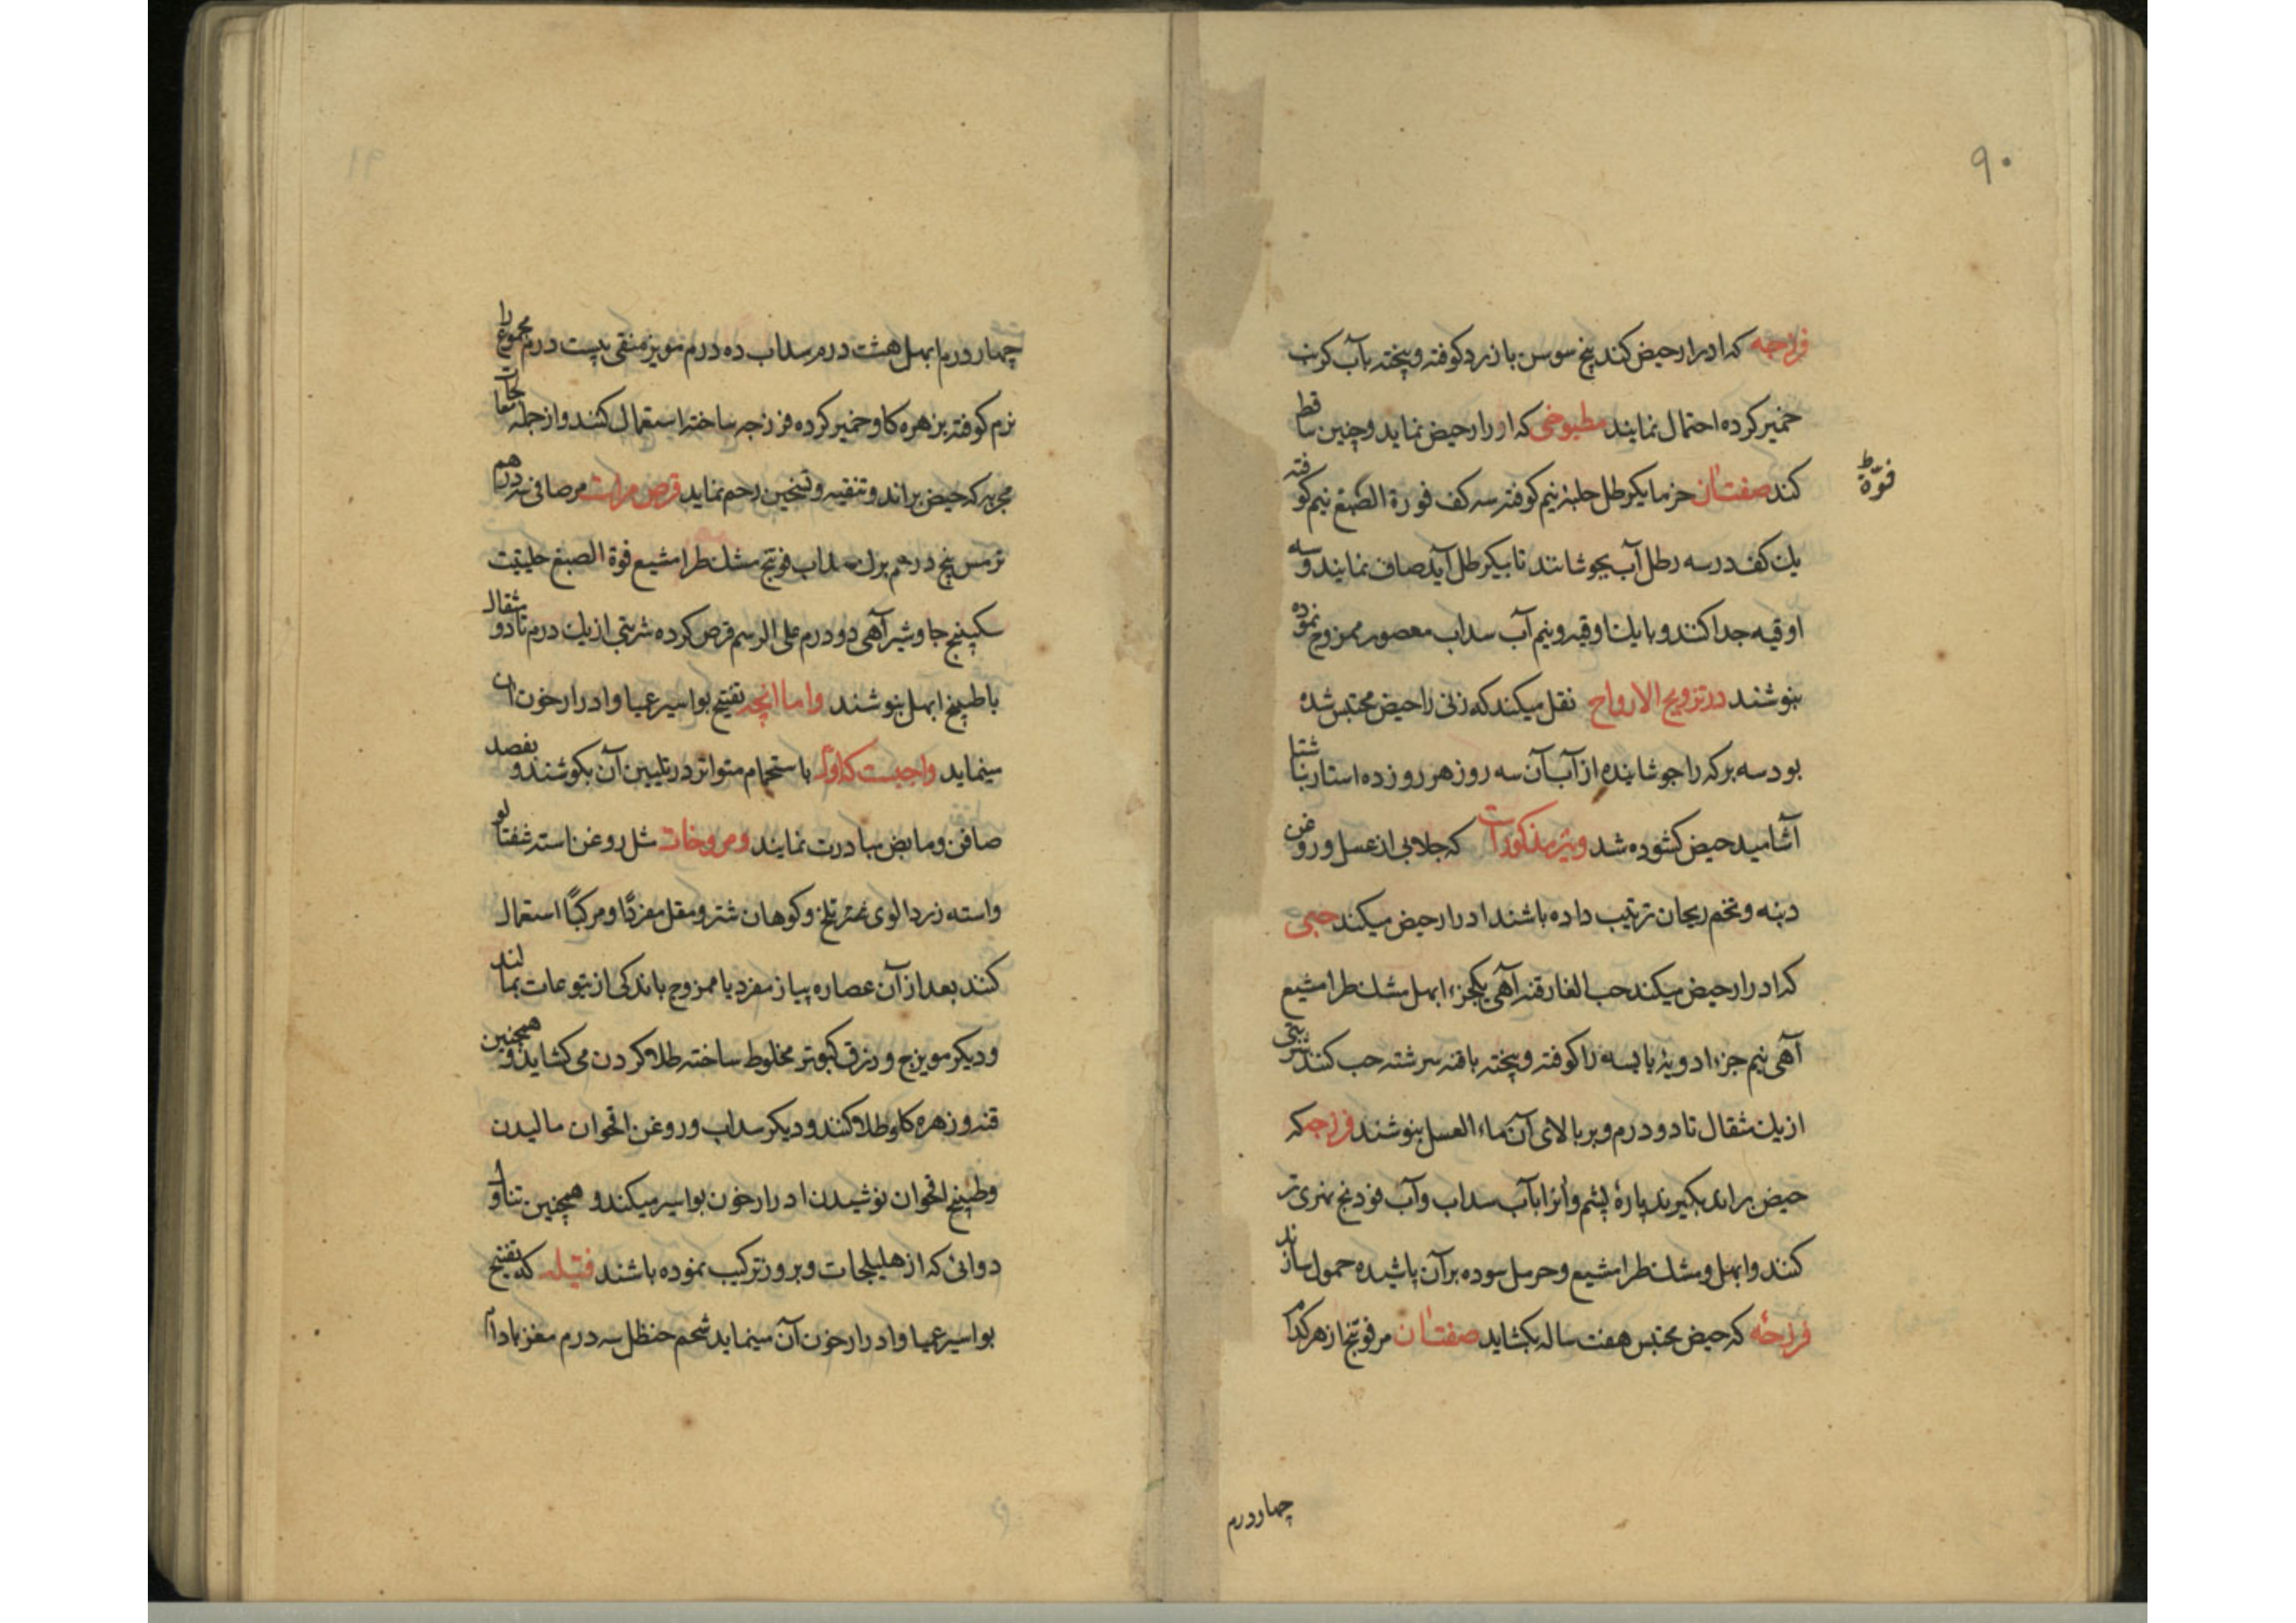 ۹۰
فرزجه که ادرار حیض کند بیخ سوسن با زرد کوفته و پیخته بآب کرنب
خمیر کرده احتمال نمایند مطبوخی که ادرار حیض نماید و چنین ساقط
کند صفت آن خرما یکرطل حلبه نیم کوفته سه کف فورة الصبغ نیم کوفته
فوّة ط
یک کف در سه رطل آب بجوشانند تا بیکرطل آید صاف نمایند و سه
اوقیه جدا کنند و با یک اوقیه و نیم آب سداب معصور ممزوج نموده
بنوشند در تزویح الارواح نقل میکند که زنی را حیض محتبس شده
بود سه برکه را جوشانیده از آب آن سه روز هر روز ده استار ناشتا
آشامید حیض کشوده شد و نیز مذکورات که جلابی از عسل و روغن
دنبه و تخم ریحان ترتیب داده باشند ادرار حیض میکند حبی
که ادرار حیض میکند حب الغار قنه آهی یکجزء ابهل مشک طرامشیع
آهی نیم جزء ادویهٔ یابسه را کوفته و پیخته با قنه سرشته حب کنند شربتی
از یک مثقال تا دو درم و بر بالای آن ماء العسل بنوشند فرزجه که
حیض براند بکیرند پارهٔ پشم و آنرا بآب سداب و آب فودنج نهری تر
کنند و ابهل و مشک طرامشیع و حرمل سوده بر آن پاشیده حمول سازند
فرزجهٔ که حیض محتبس هفت ساله بکشاید صفت آن مر فوتنج از هر کدام
چهار درم
۹۱
چهار درم ابهل هشت درم سداب ده درم مویز منقی بیست درم مجموع را
نرم کوفته بزهره کاو خمیر کرده فرزجه ساخته استعمال کنند و از جمله معالجات
مجربه که حیض براند و تنقیه و تسخین رحم نماید قرص مرات مر صافی سه درهم
ترمس پنج درهم برک سداب فوتنج مشک طرامشیع فوة الصبغ حلتیت
سکبینج جاوشیر آهی دو درم علی الرسم قرص کرده شربتی از یک درم تا دو مثقال
با طبیخ ابهل بنوشند و اما آنچه تفتیح بواسیر عمیا و ادرار خون آن
مینماید واجبست که اولا باستحمام متواتر در تلیین آن بکوشند و بفصد
صافن و مابض مبادرت نمایند و مروخات مثل روغن استه شفتالو
و استه زردالوی ثمر تلخ و کوهان شتر و مقل مفردًا و مرکبًا استعمال
کنند بعد از آن عصاره پیاز مفرد یا ممزوج باندکی از یتوعات بمالند
و دیکر مویزج و زرق کبوتر مخلوط ساخته طلا کردن می کشاید و همچنین
قنه و زهره کاو طلا کنند و دیکر سداب و روغن اقحوان مالیدن
و طبیخ اقحوان نوشیدن ادرار خون بواسیر میکند و همچنین تناول
دوائی که از هلیلجات و بزور ترکیب نموده باشند فتیله که تفتیح
بواسیر عمیا و ادرار خون آن مینماید شحم حنظل سه درم مغز بادام